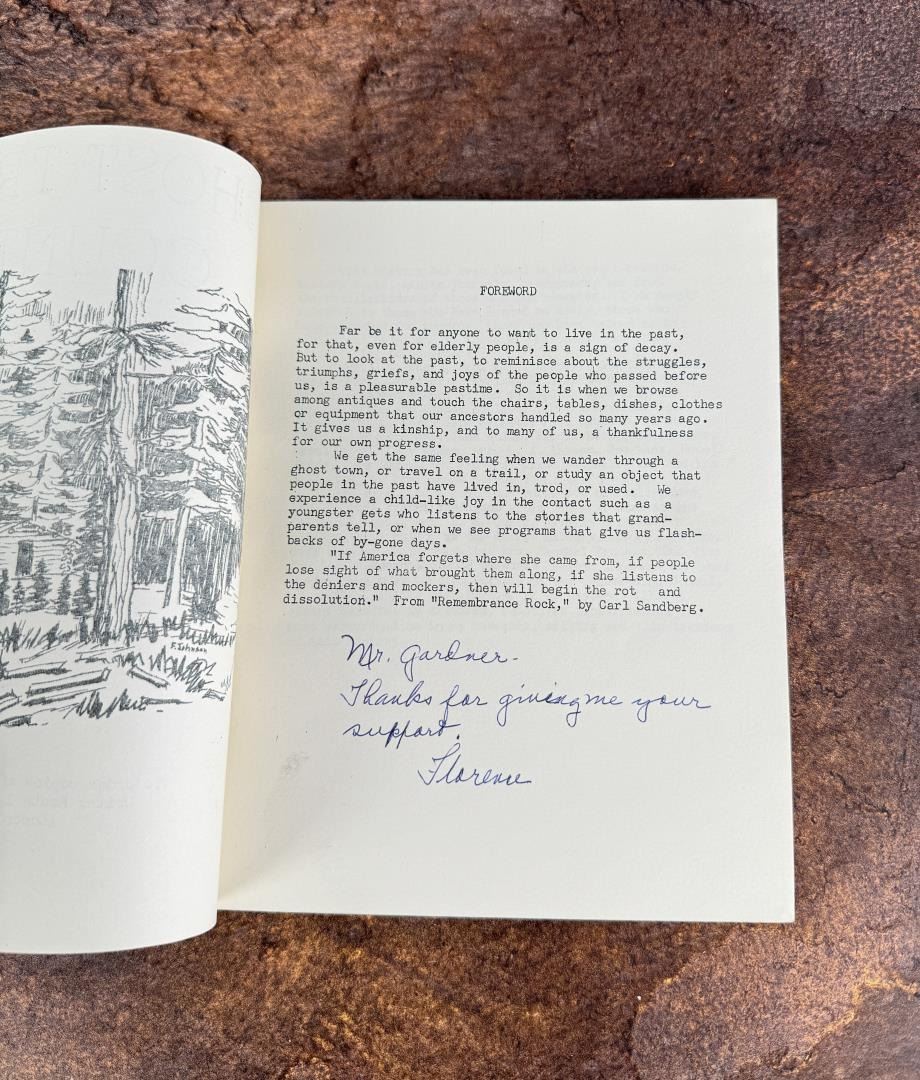 F. Johnson
FOREWORD
Far be it for anyone to want to live in the past,
for that, even for elderly people, is a sign of decay.
But to look at the past, to reminisce about the struggles,
triumphs, griefs, and joys of the people who passed before
us, is a pleasurable pastime.  So it is when we browse
among antiques and touch the chairs, tables, dishes, clothes
or equipment that our ancestors handled so many years ago.
It gives us a kinship, and to many of us, a thankfulness
for our own progress.
We get the same feeling when we wander through a
ghost town, or travel on a trail, or study an object that
people in the past have lived in, trod, or used.  We
experience a child-like joy in the contact such as  a
youngster gets who listens to the stories that grand-
parents tell, or when we see programs that give us flash-
backs of by-gone days.
"If America forgets where she came from, if people
lose sight of what brought them along, if she listens to
the deniers and mockers, then will begin the rot  and
dissolution."  From "Remembrance Rock," by Carl Sandberg.
Mr. Gardner-
Thanks for giving me your
support.
Florence